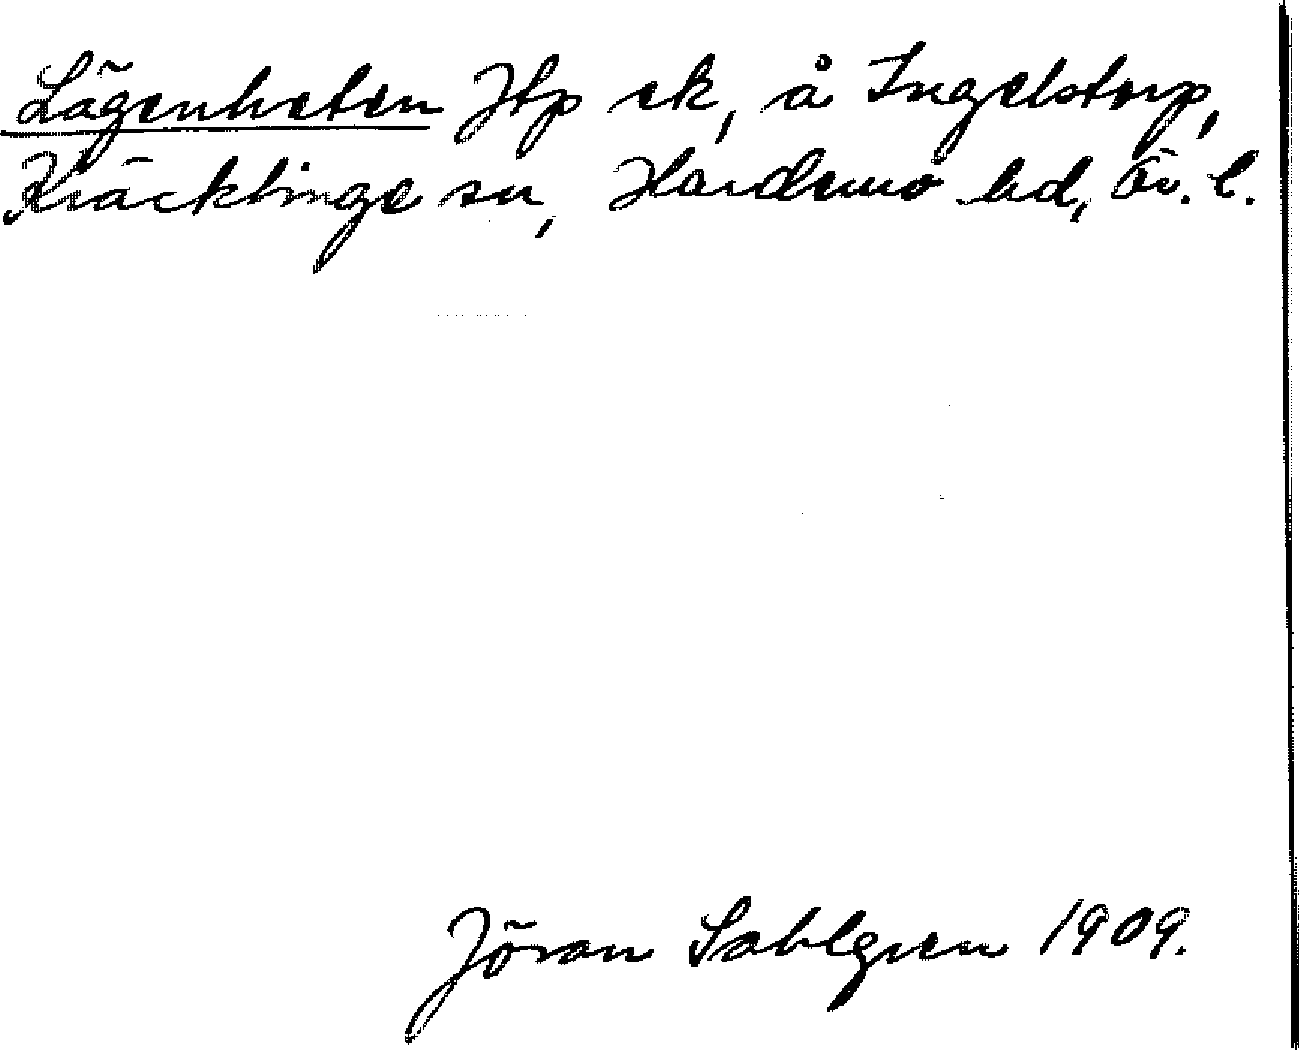 Lägenheten Htp ek, å Ingelstorp,
Kräcklinge sn, Hardemo hd, Ör. l.
Jöran Sahlgren 1909.